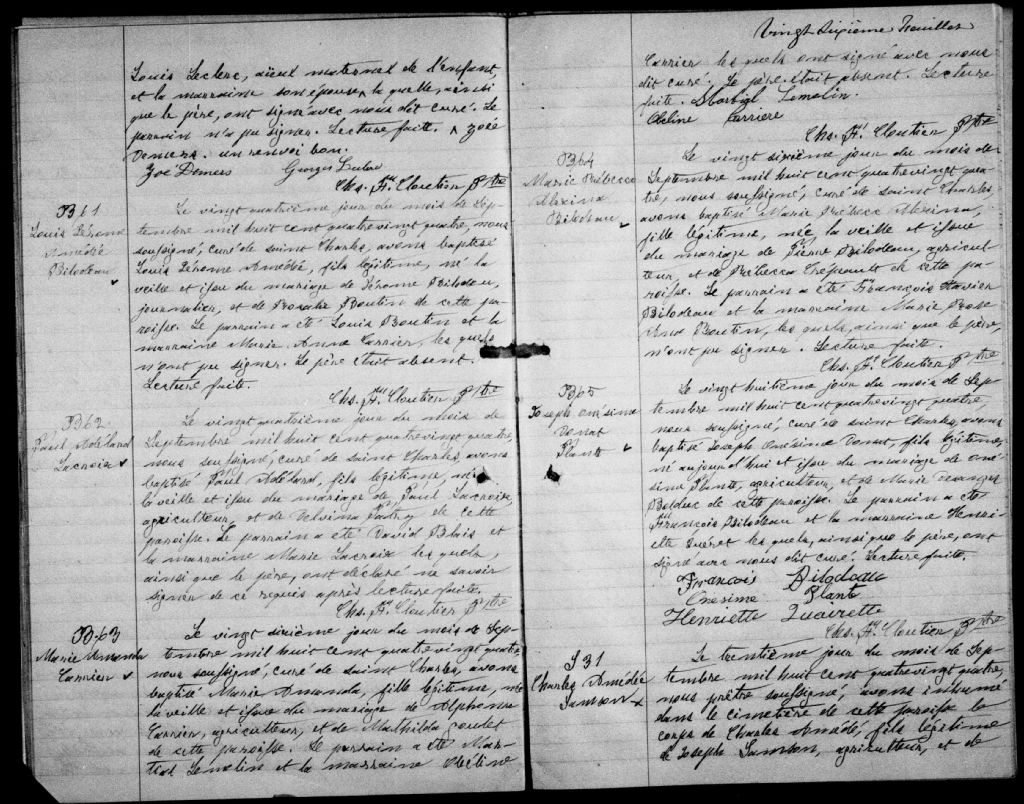 Louis Leclerc, aïeul maternel de l'enfant,
et la marraine son épouse, laquelle, ainsi
que le père, ont signé avec nous dit curé. Le
parrain n'a pu signer. Lecture faite. ^ Zoé
Demers. un renvoi bon.
Zoé Demers Georges
Chs. Fs. Cloutier Ptre
B61
Louis Jérome
Amédé
Bilodeau
Le vingt quatrième jour du mois de Sep-
tembre mil huit cent quatrevingt quatre, nous
soussigné, curé de saint Charles, avons baptisé
Louis Jérome Amédé, fils légitime, né la
veille et issu du mariage de Jérome Bilodeau,
journalier, et de Rosalie Boutin de cette pa-
roisse. Le parrain a été Louis Boutin et la
marraine Marie Anne Carrier, les quels
n'ont pu signer. Le père était absent.
Lecture faite.
Chs. Fs. Cloutier Ptre
B62
Paul Adélard
Lacroix
Le vingt quatrième jour du mois de
Septembre mil huit cent quatrevingt quatre,
nous soussigné, curé de saint Charles, avons
baptisé Paul Adélard, fils légitime, né
la veille et issu du mariage de Paul Lacroix,
agriculteur, et de Delvina Patry de cette
paroisse. Le parrain a été David Blais et
la marraine Marie Lacroix les quels,
ainsi que le père, ont déclaré ne savoir
signer de ce requis après lecture faite.
Chs. Fs. Cloutier Ptre
B63
Marie Amanda
Carrier
Le vingt sixième jour du mois de Sep-
tembre mil huit cent quatrevingt quatre
nous soussigné, curé de saint Charles, avons
baptisé Marie Amanda, fille légitime, née
la veille et issue du mariage de Alphonse
Carrier, agriculteur, et de Mathilda
de cette paroisse. Le parrain a été Mar-
tial Lemelin et la marraine Obéline
Vingt Sixième Feuillet
Carrier les quels ont signé avec nous
dit curé. Le père était absent. Lecture
faite. Martial Lemelin.
Obéline Carriere
Chs. Fs. Cloutier Ptre
B64
Marie Rébecca
Alexina
Bilodeau
Le vingt sixième jour du mois de
Septembre mil huit cent quatrevingt qua
tre, nous soussigné, curé de saint Charles,
avons baptisé Marie Rébecca Alexina,
fille légitime, née la veille et issue
du mariage de Pierre Bilodeau, agricul-
teur, et de Rébecca Crépault de cette pa-
roisse. Le parrain a été François Xavier
Bilodeau et la marraine Marie Rose
Anna Boutin, les quels, ainsi que le père,
n'ont pu signer. Lecture faite.
Chs. Fs. Cloutier Ptre
B65
Joseph Onésime
Donat
Plante
Le vingt huitième jour du mois de Sep-
tembre mil huit cent quatrevingt quatre,
nous soussigné, curé de saint Charles, avons
baptisé Joseph Onésime Donat, fils légitime,
né aujourd'hui et issu du mariage de Oné-
sime Plante, agriculteur, et de Marie
Bolduc de cette paroisse. Le parrain a été
François Bilodeau et la marraine Henri-
ette les quels, ainsi que le père, ont
signé avec nous dit curé. Lecture faite.
François Bilodeau
Onésime Plante
Henriette
Chs. Fs. Cloutier Ptre
S31
Charles Amédée
Samson
Le trentième jour du mois de Sep-
tembre mil huit cent quatrevingt quatre,
nous prêtre soussigné avons inhumé
dans le cimetière de cette paroisse le
corps de Charles Amédé, fils légitime
de Joseph Samson, agriculteur, et de